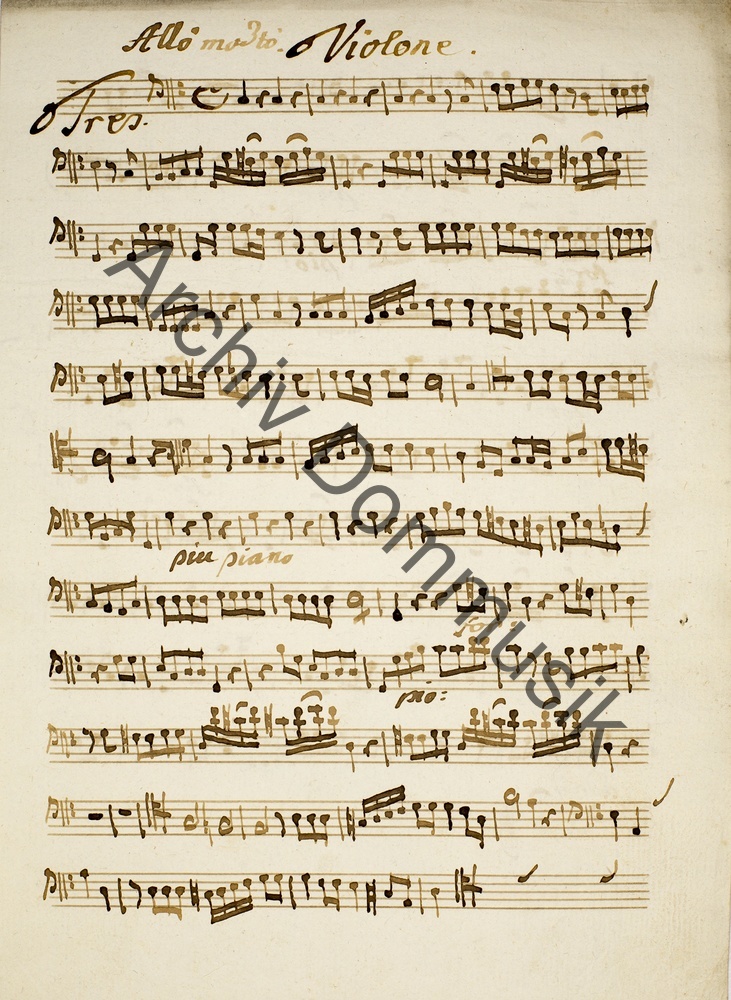 Allo mod.to. Violone.
Tres.
piu piano
for:
pio:
Archiv Dommusik